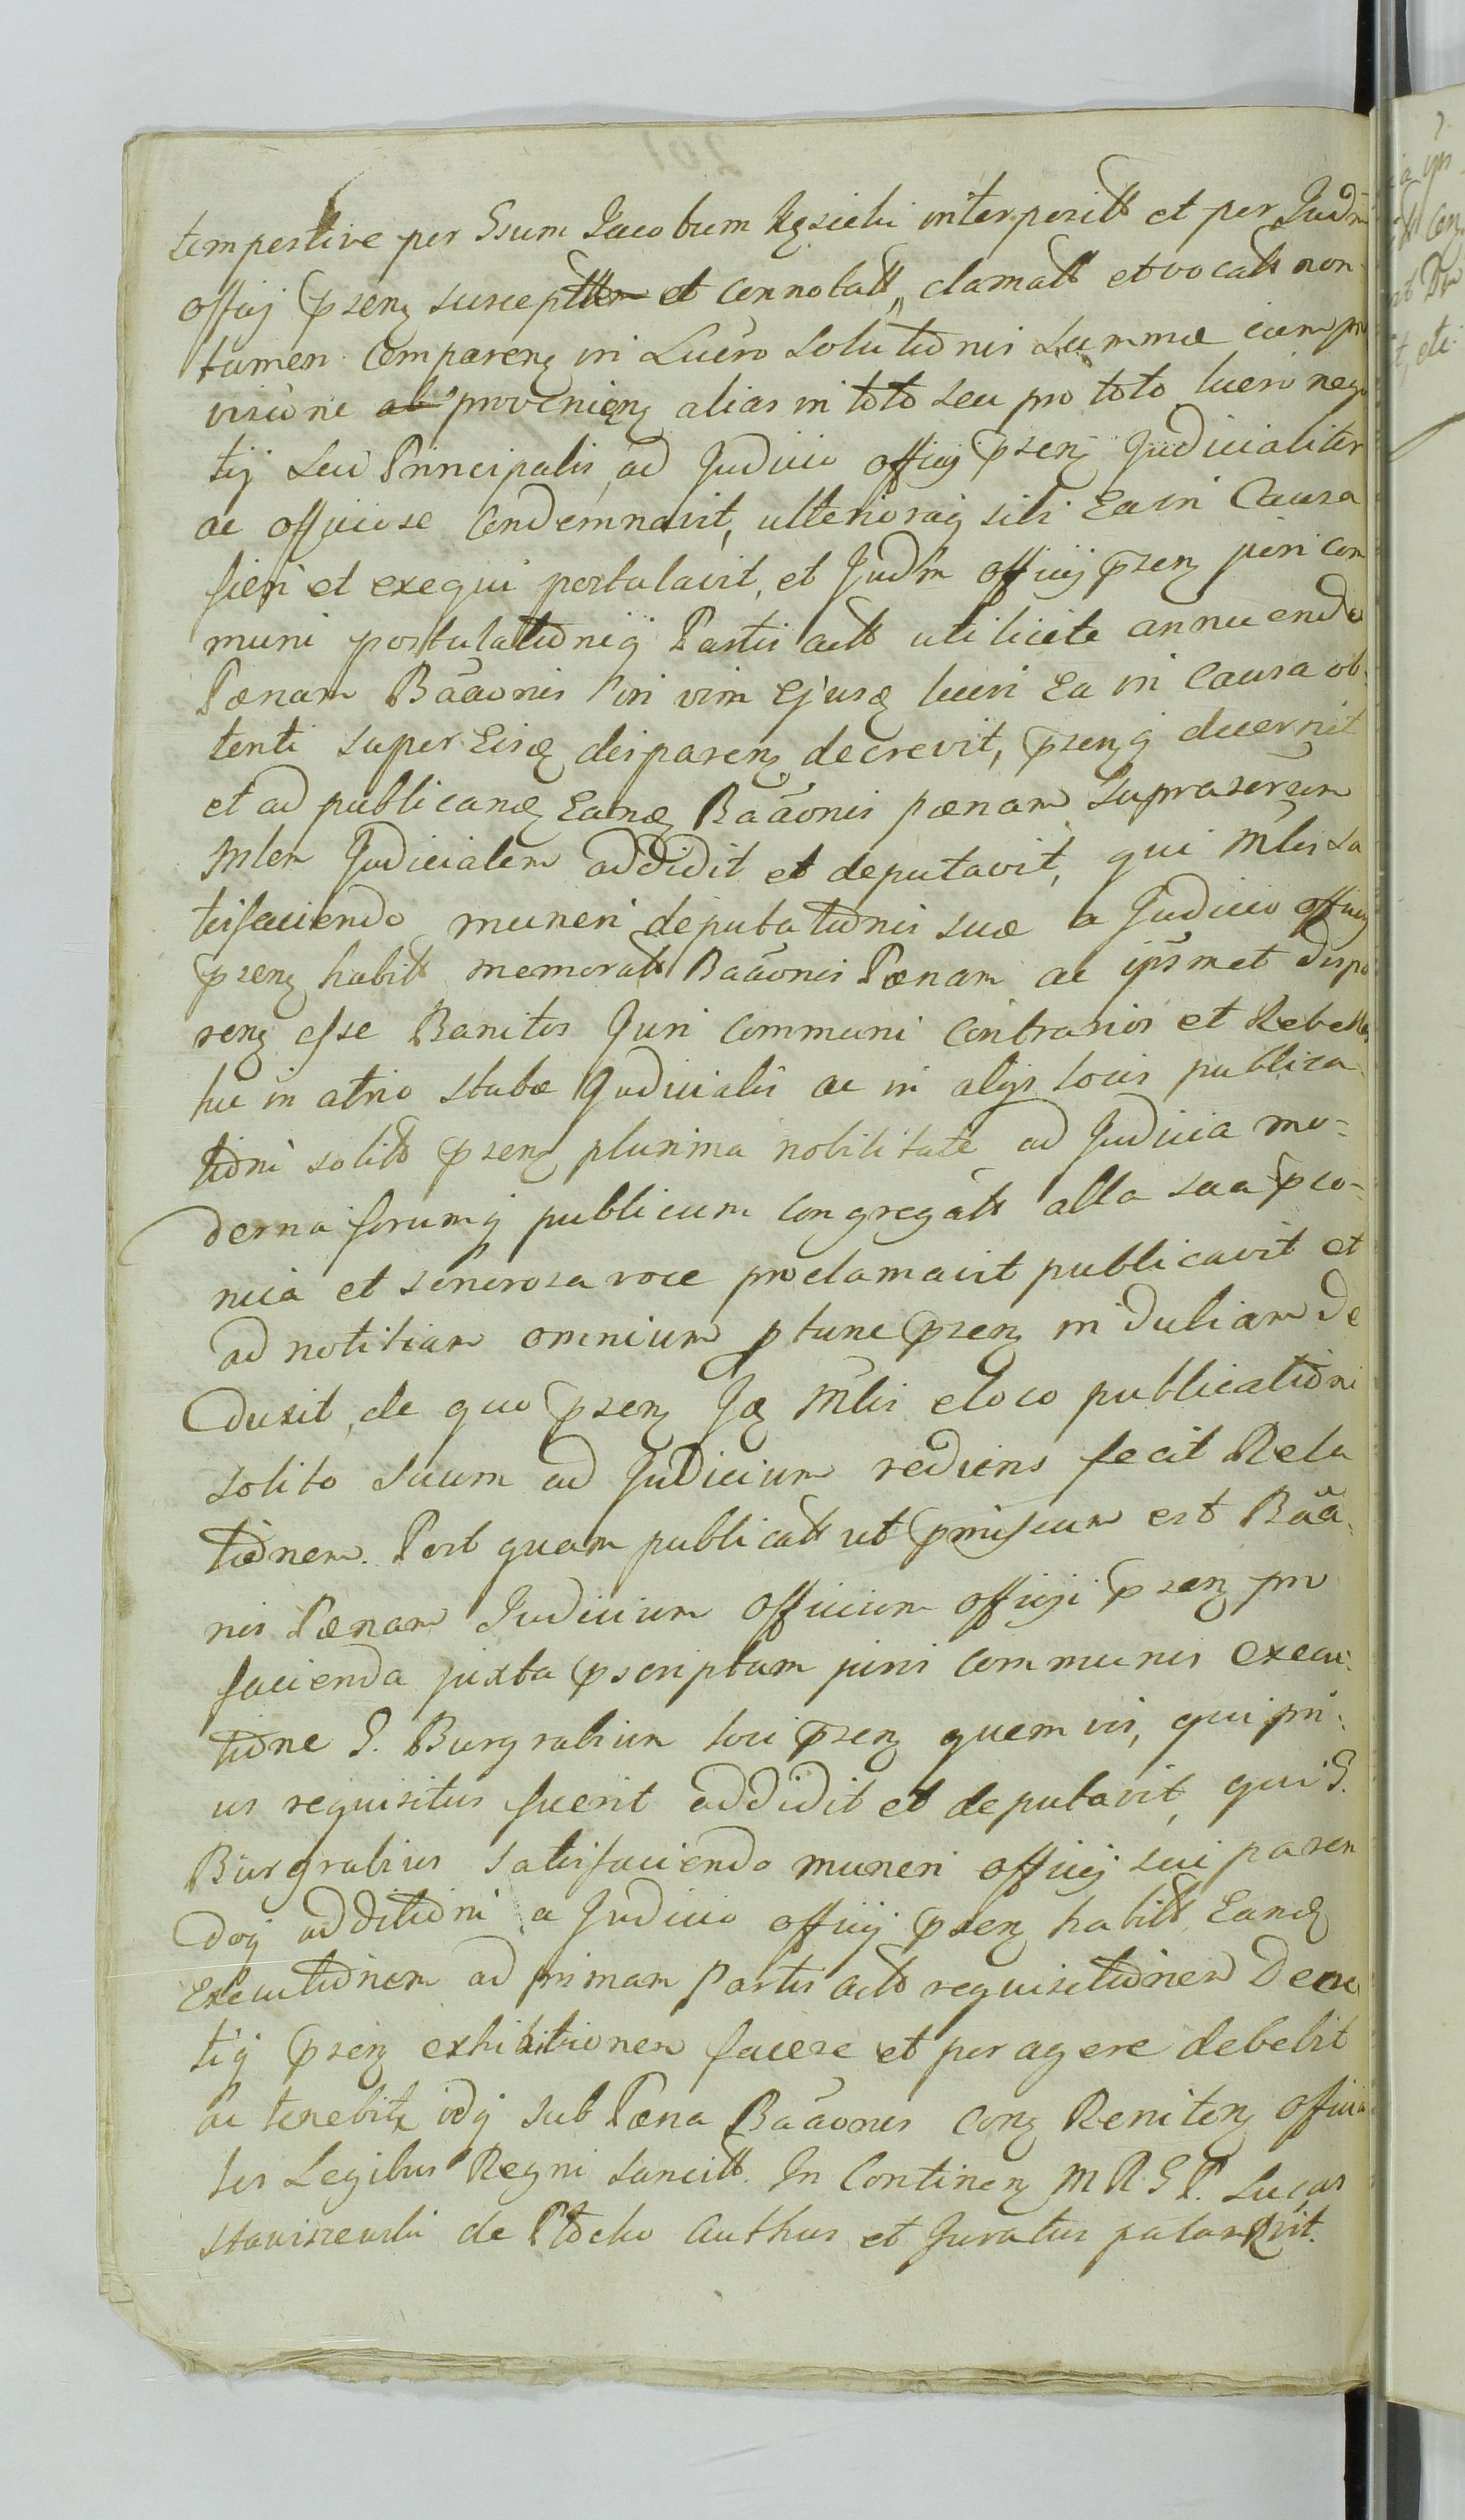 tempestive per Gsum Jacobum Kęsicki interposit et per Judm
officij pseng susceptt et connotatt, clamatt et vocatt non
tamen compareng in Lucro Solutionis Summæ cum pro
visione provenieng alias in toto seu pro toto lucro nego
tij seu Principalis, ad Judicio officij pseng Judicialiter
ac officiose condemnavit, ulterioraq sibi Ea in Causa
fieri et exequi postulavit, et Judm officij pseng juri com
muni postulationiq Partis actt uti licite annuendo
Pœnam Bããonis in vim Ejusq lucri Ea in Causa ob-
tenti super Eisq dispareng decrevit, psengq decernit
et ad publicandg Eandg Bããonis pœnam Suprascrum
Mlem Judicialem addidit et deputavit, qui Mlis sa
tisfaciendo muneri deputationis suæ a Judicio officij
pseng habitt memoratt Bããonis Pœnam ac ipsmet dispa
reng esse Banitos Juri communi contrarios et Rebelles
hic in atrio stubæ Judicialis ac in alijs locis publica
tioni solitt pseng plurima nobilitate ad Judicia mo-
derna forumq publicum congregatt alta sua pco-
nica et sonorosa voce proclamavit publicavit et
ad notitiam omnium ptunc pseng in dubiam de
duxit, de quo pseng Jg Mlis e loco publicationi
solito suum ad Judicium rediens fecit Rela
tionem. Post quam publicatt ut pmissum est Bãã-
nis Pœnam Judicium officium officij pseng pro
facienda juxta pscriptum juris communis execu-
tione G. Burgrabium loci pseng quem vis, qui pri-
us requisitus fuerit addidit et deputavit, qui G.
Burgrabius satisfaciendo muneri officij sui paren
doq additioni a Judicio officij pseng habitt, Eandg
Executionem ad primam Partis actt requisitionem Decre
tiq pseng exhibitionem facere et peragere debebit
ac tenebitr idq sub Pœna Bããonis cong Reniteng officia
les Legibus Regni sancitt. In Contineng M R G P. Lucas
Staniszewski de Płocko Authus et Juratus